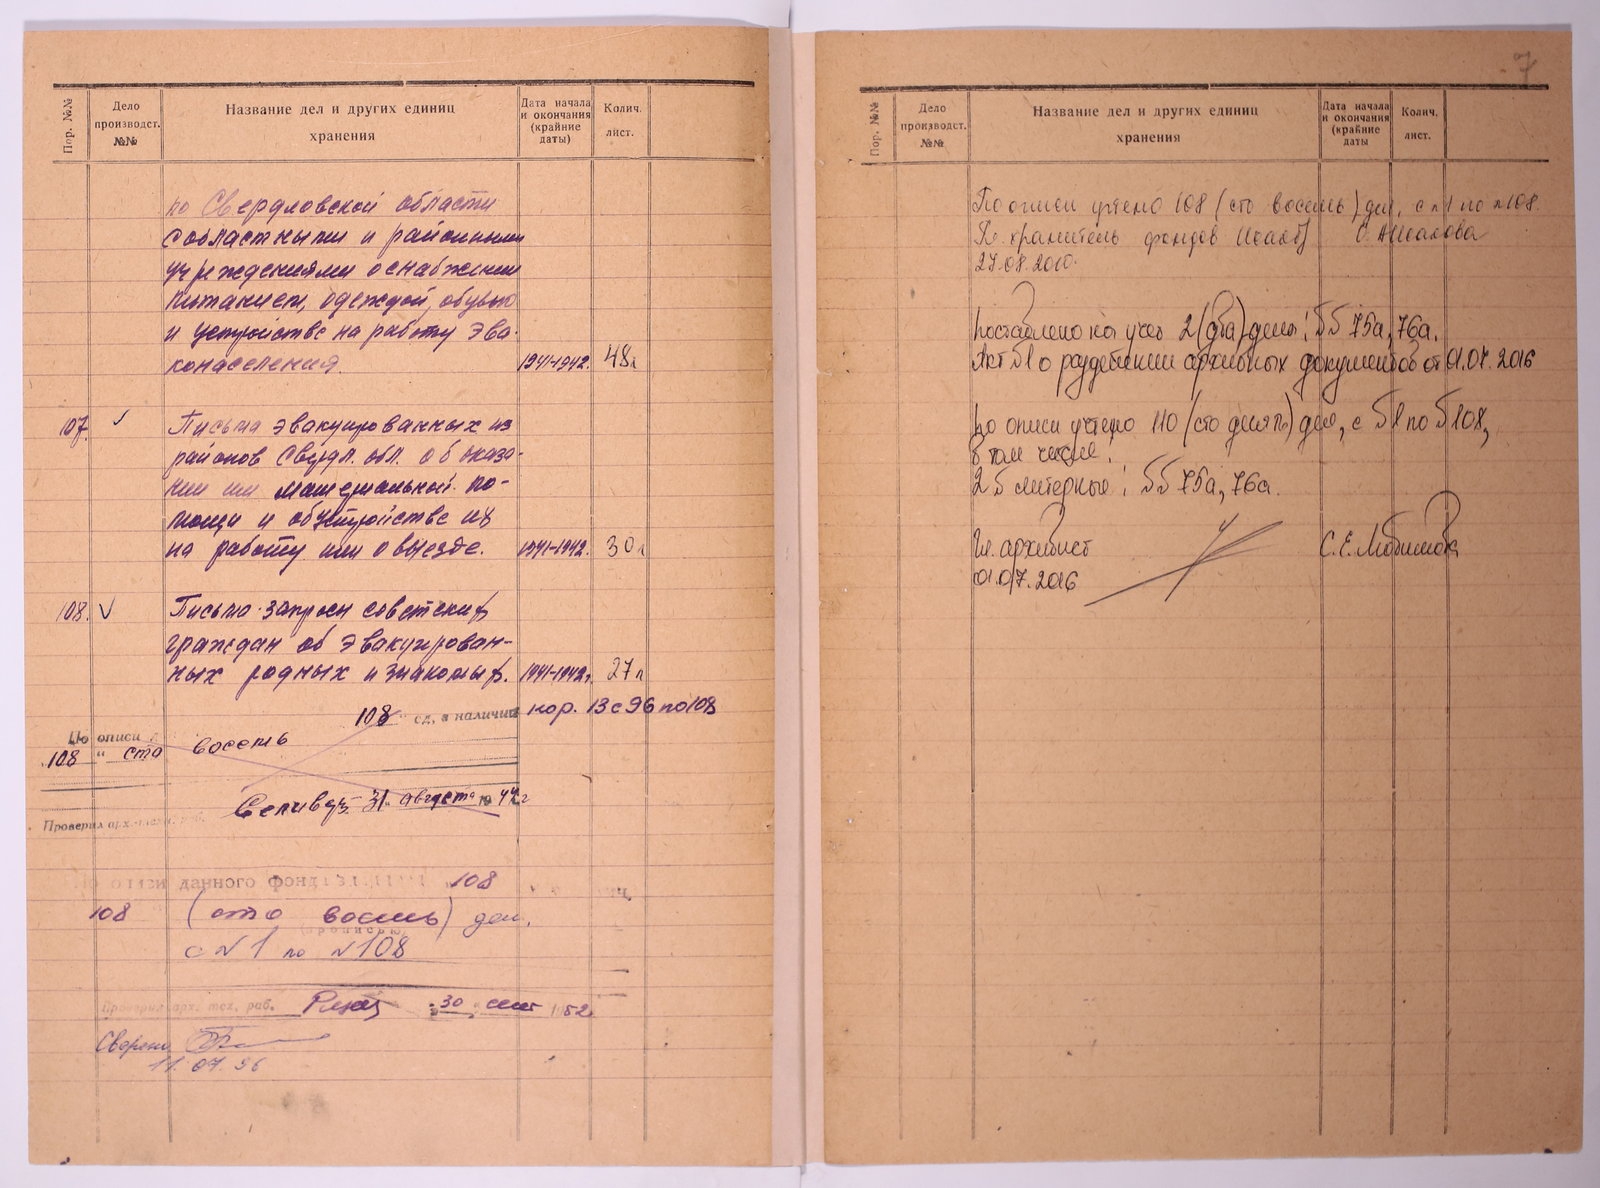 Пор. №№
Дело производст. №№
Название дел и других единиц хранения
Дата начала и окончания (крайние даты)
Колич. лист.
по Свердловской области
с областными и районными
учреждениями о снабжении
питанием, одеждой, обувью
и устройстве на работу эва-
конаселения. 1941-1942. 48л
107. Письма эвакуированных из
районов Свердл. обл. об оказа-
нии им материальной по-
мощи и обустройстве их
на работу или о выезде. 1941-1942. 30л
108. Письма-запросы советских
граждан об эвакуирован-
ных родных и знакомых. 1941-1942г. 27л
108 ед. в наличии кор. 13 с 96 по 108
По описи
108 " сто восемь
31 августа 1944г
Проверил арх.-техн. раб.
По описи данного фонда 108
108 (сто восемь) дел,
(прописью)
с №1 по №108
Проверил арх. тех. раб. 30 сент 1952
Сверено
11.07.96
7
Пор. №№
Дело производст. №№
Название дел и других единиц хранения
Дата начала и окончания (крайние даты)
Колич. лист.
По описи учтено 108 (сто восемь) дел, с №1 по №108.
Гл. хранитель фондов
27.08.2010.
Поставлено на учет 2 (два) дела: №№ 75а, 76а.
Акт №1 о разделении архивных документов от 01.07.2016
По описи учтено 110 (сто десять) дел, с №1 по №108,
в том числе:
2 № литерные: №№ 75а, 76а.
Гл. архивист С.Е. Любимова
01.07.2016